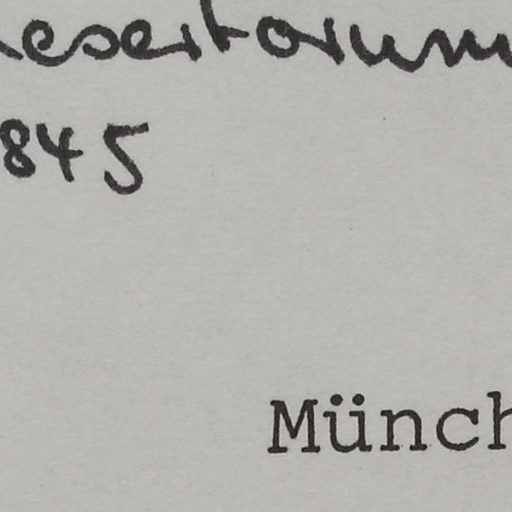 desertorum
845
Münch